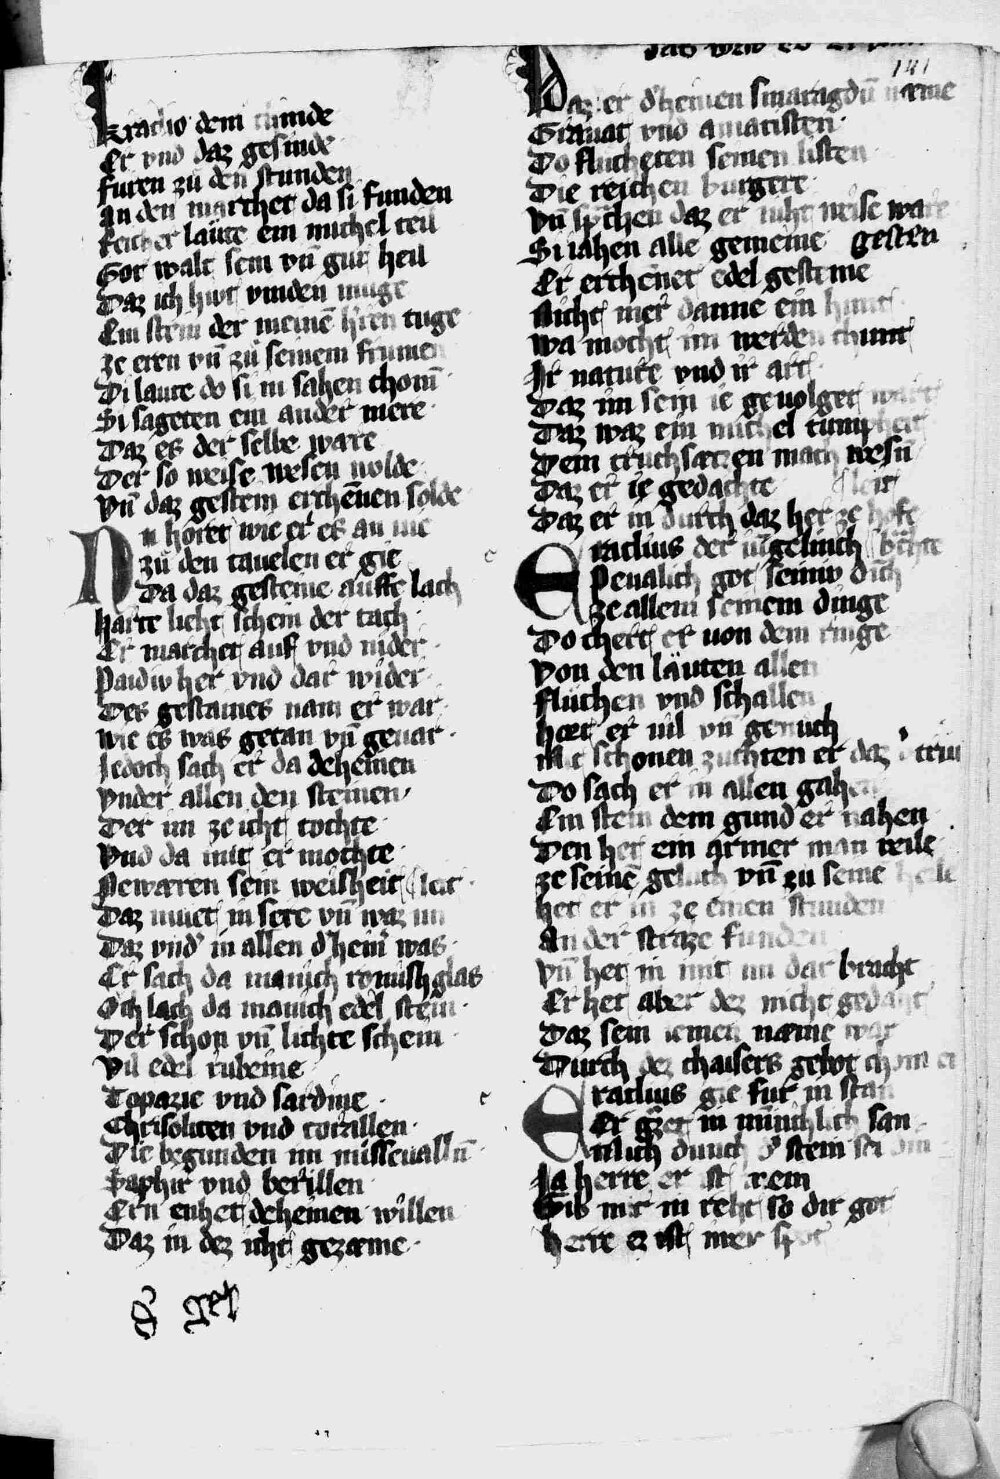 Eraclio dem chinde
Er vnd daz gesinde
Furen zu den stunden
An den marchet da si funden
Reicher läute ein michel teil
Got walt sein vn̄ gut heil
Daz ich hiut vinden muge
Ein stein der meinē h'ren tuge
Ze eren vn̄ zu seinem frumen
Di laute do si in sahen chom̄
Si sageten ein ander mere
Daz es der selbe ware
Der so weise wesen wolde
Vn̄ daz gestein erchēnen solde
Nu horet wie er es an uie
zu den tauelen er gie
Da daz gesteine auffe lach
harte licht schein der tach
Er marchet auf vnd nider
Paidiv her vnd dar wider
Des gestaines nam er war
wie es was getan vn̄ geuar
Jedoch sach er da deheinen
Vnder allen den steinen
Der im ze icht tochte
Vnd da mit er mochte
Pewaren sein weisheit
Daz muet in sere vn̄ waz im leit
Daz vnd' in allen d'hein' was
Er sach da manich romisch glas
Och lach da manich edel stein
Der schon vn̄ lichte schein
Vil edel rubeine
Topazie vnd sardine
Chrisoliten vnd corallen
Die begunden im misseuallū
Saphir vnd berillen
Ern enhet deheinen willen
Daz in dez icht gezæme
Daz er d'heinen smaragdū næme
Granat vnd amatisten
Do flucheten seinen listen
Die reichen burgere
Vn̄ sp̄chen daz er niht weise ware
Si iahen alle gemeine gestern
Er erchenet edel gesteine
Nicht mer danne ein hunt
Wa mocht im werden chunt
Ir nature vnd ir art
Daz im sein ie geuolget wart
Daz waz ein michel tumpheit
Dem truchsætzen mach wesn̄ leit
Daz er ie gedachte
Daz er in durch daz her ze hofe b̊chte
Eraclius der iūgelinch
Peualich got seiniv dinch
ze allem seinem dinge
Do chert er uon dem ringe
Von den läuten allen
Fluchen vnd schallen
hort er uil vn̄ genuch
Mit schonen zuchten er daz v'truc
Do sach er in allen gahen
Ein stein dem gund er nahen
Den het ein armer man veile
ze seinē geluch vn̄ zu seinē heile
het er in ze einen stunden
An der straze funden
Vn̄ het in mit im dar bracht
Er het aber dez nicht gedaht
Daz sein iemen næme war
Durch dez chaisers gebot chom er
Eraclius gie fur in stan
Er g̊zet in minnichlich san
Mich dunch d' stein sei
Ja herre er ist rein
Gib mir in reht so dir got
herre ez ist iwer spot